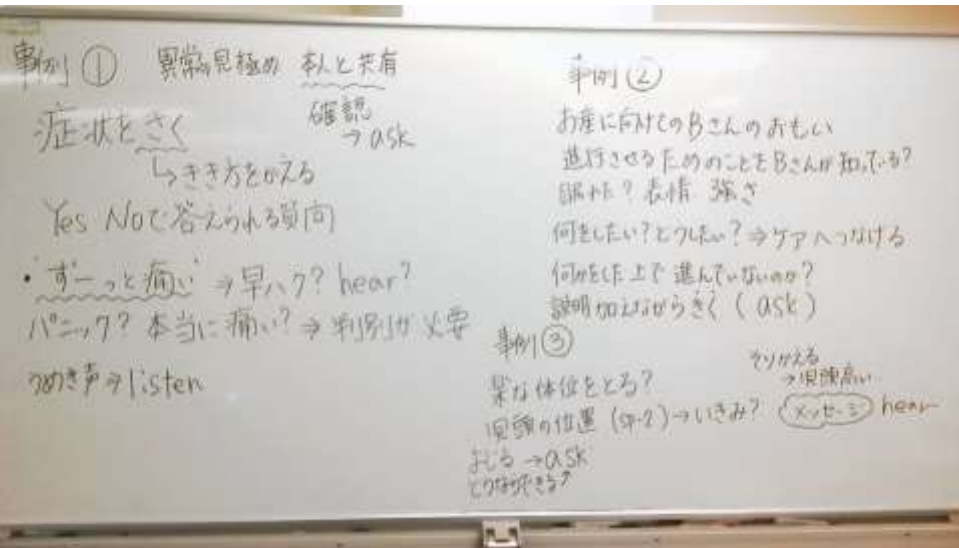 事例① 異常の見極め 本人と共有
確認
→ask
症状をきく
↳きき方をかえる
Yes Noで答えられる質問
・ずーっと痛い ⇒早ハク? hear?
パニック? 本当に痛い? ⇒判別が必要
うめき声⇒listen
事例②
お産に向けてのBさんのおもい
進行させるためのことをBさんが知っている?
眠れた? 表情 強さ
何をしたい? どうしたい? ⇒ケアへつなげる
何かをした上で進んでいないのか?
説明加えながらきく (ask)
事例③
楽な体位をとる?
児頭の位置 (SP-2)→いきみ?
そりかえる
→児頭高い
メッセージ hear
→ask